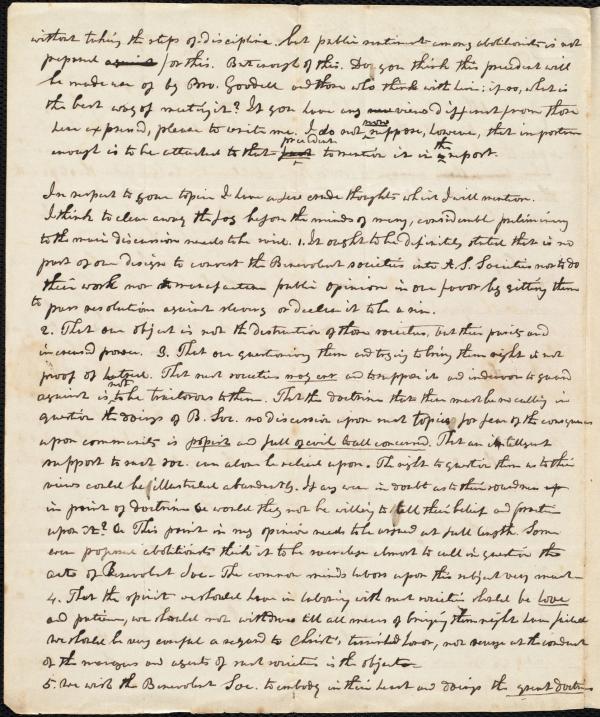 without taking the steps of discipline. but public sentiment among abolitionists is not
prepared for this. But enough of this. Do you think this precedent will
be made use of by Bro. Goodell and those who think with him: if so, what is
the best way of meeting it? If you have any views different from those
here expressed, please to write me. I do not now suppose, however, that importance
enough is to be attached to that precedent to mention it in the report.
In respect to your topic I have a few crude thoughts which I will mention.
I think to clear away the fog before the minds of many, considerable preliminary
to the main discussion needs to be said. 1. It ought to be definitely stated that it is no
part of our design to convert the Benevolent societies into A. S. Societies nor to do
their work nor to manufacture public opinion in our favor by getting them
to pass resolutions against slavery or declare it to be a sin.
2. That our object is not the destruction of those societies, but their purity and
increased power. 3. That our questioning them and trying to bring them right is not
proof of hatred. That such societies may err and to suppose it and endeavor to guard
against is not to be traitorous to them. That the doctrine that there must be no calling in
question the doings of B. Soc. no discussion upon such topics for fear of the consequences
upon community is popish and full of evil to all concerned. That an intelligent
support to such soc. can alone be relied upon. The right to question them as to their
views could be illustrated abundantly. If any were in doubt as to their soundness
in point of doctrine would they not be willing to tell their belief and
upon it? This point in my opinion needs to be urged at full length. Some
even proposed abolitionists think it to be sacrilege almost to call in question the
acts of Benevolent Soc. The common minds labors upon this subject very much
4. That the spirit we should have in laboring with such societies should be love
and patience, we should not withdraw till all means of bringing them right have failed
We should be very careful a regard to Christ's tarnished honor, not revenge at the conduct
of the managers and agents of such societies is the object
5. We wish the Benevolent Soc. to embody in their heart and doings the great doctrine